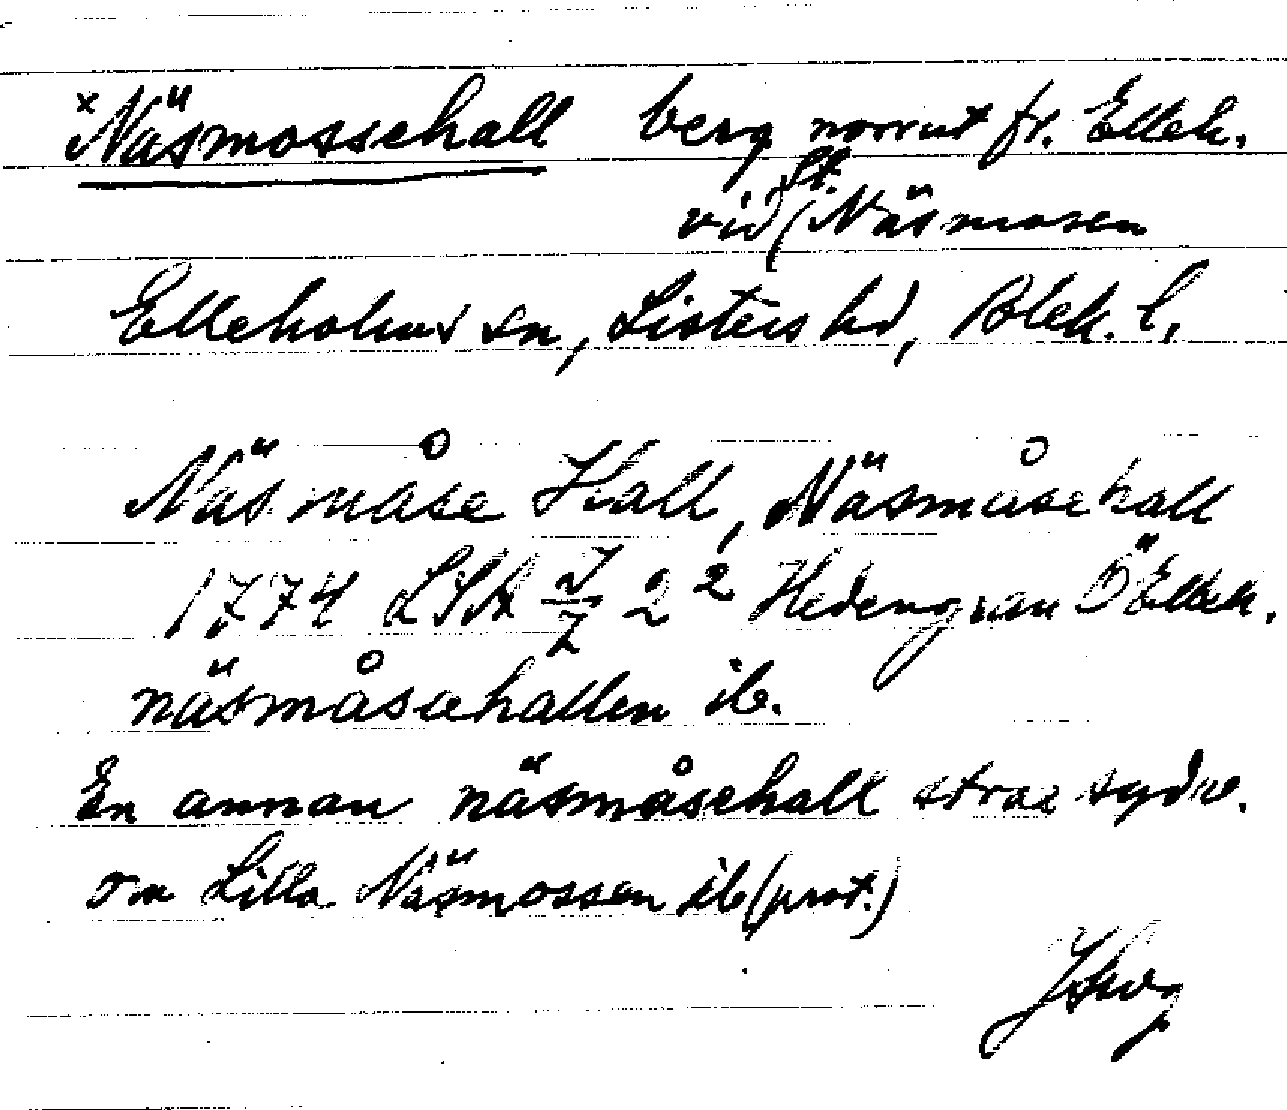 ×Näsmossehall berg norrut fr. Elleh.
vid (St. Näsmosen
Elleholms sn, Listers hd, Blek. l.
Näsmåse Hall, Näsmåsehall
1774 LSA J/7 2² Hedengran Ö Elleh.
näsmåsehallen ib.
En annan näsmåsehall strax sydv.
om Lilla Näsmossen ib (prot.)